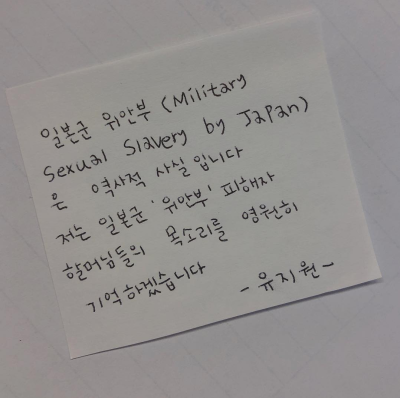 일본군 위안부 (Military
Sexual Slavery by Japan)
은 역사적 사실입니다
저는 일본군 '위안부' 피해자
할머님들의 목소리를 영원히
기억하겠습니다
- 유지원 -